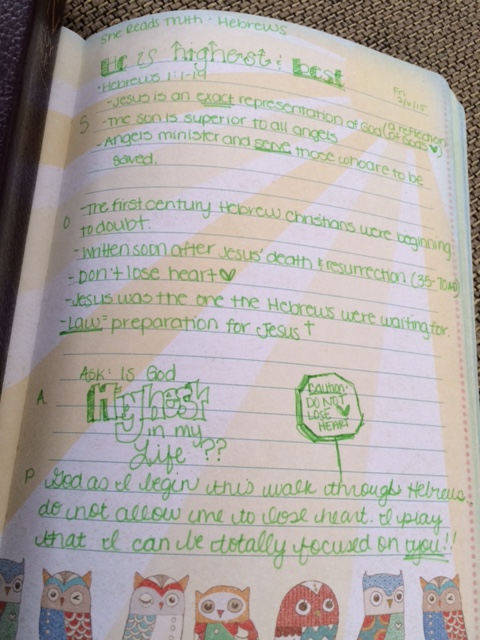 She Reads Truth - Hebrews
He is highest & best
Fri.
2/6/15
• Hebrews 1:1-14
- Jesus is an exact representation of God (a reflection of God's ♥)
S - The son is superior to all angels
- Angels minister and serve those who are to be
saved.
O - The first century Hebrew Christians were beginning
to doubt.
- Written soon after Jesus' death & resurrection (35-70AD)
- Don't lose heart ♡
- Jesus was the one the Hebrews were waiting for.
- Law = preparation for Jesus †
Ask: Is God
A Highest
in my
Life ??
Caution:
DO NOT
LOSE ♥
HEART
P God as I begin this walk through Hebrews
do not allow me to lose heart. I pray
that I can be totally focused on you!!